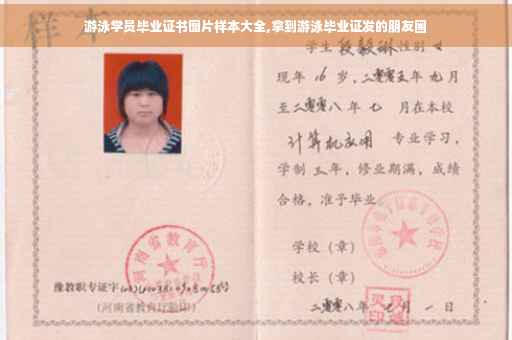 样本
游泳学员毕业证书图片样本大全,拿到游泳毕业证发的朋友圈
学生 段毅琳 性别 女
现年 16 岁,二零零五年 九月
至二零零八年 七 月在本校
计算机应用 专业学习,
学制 三年,修业期满,成绩
合格,准予毕业
学校(章)
校长(章)
二零零八年 七月 一日
河南省教育厅
豫教职专证字
(河南省教育厅验印)